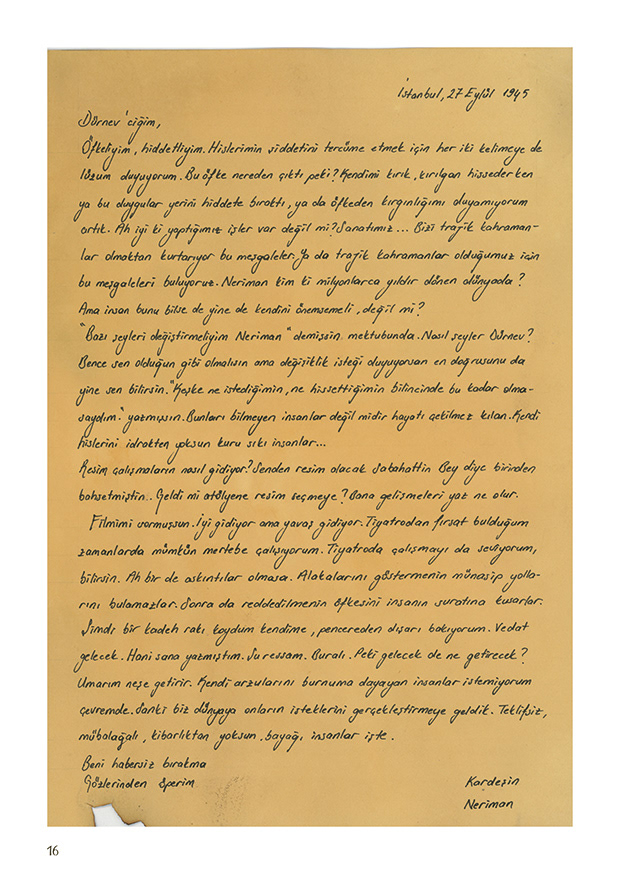 İstanbul, 27 Eylül 1945
Dürnev'ciğim,
Öfkeliyim, hiddetliyim. Hislerimin şiddetini tercüme etmek için her iki kelimeye de
lüzum duyuyorum. Bu öfke nereden çıktı peki? Kendimi kırık, kırılgan hissederken
ya bu duygular yerini hiddete bıraktı, ya da öfkeden kırgınlığımı duyamıyorum
artık. Ah iyi ki yaptığımız işler var değil mi? Sanatımız... Bizi trajik kahraman-
lar olmaktan kurtarıyor bu meşgaleler. Ya da trajik kahramanlar olduğumuz için
bu meşgaleleri buluyoruz. Neriman kim ki milyonlarca yıldır dönen dünyada?
Ama insan bunu bilse de yine de kendini önemsemeli, değil mi?
"Bazı şeyleri değiştirmeliyim Neriman" demişsin mektubunda. Nasıl şeyler Dürnev?
Bence sen olduğun gibi olmalısın ama değişiklik isteği duyuyorsan en doğrusunu da
yine sen bilirsin. "Keşke ne istediğimin, ne hissettiğimin bilincinde bu kadar olma-
saydım." yazmışsın. Bunları bilmeyen insanlar değil midir hayatı çekilmez kılan. Kendi
hislerini idrakten yoksun kuru sıkı insanlar...
Resim çalışmaların nasıl gidiyor? Senden resim alacak Sabahattin Bey diye birinden
bahsetmiştin.. Geldi mi atölyene resim seçmeye? Bana gelişmeleri yaz ne olur.
Filmimi sormuşsun. İyi gidiyor ama yavaş gidiyor. Tiyatrodan fırsat bulduğum
zamanlarda mümkün mertebe çalışıyorum. Tiyatroda çalışmayı da seviyorum,
bilirsin. Ah bir de askıntılar olmasa. Alakalarını göstermenin münasip yolla-
rını bulamazlar. Sonra da reddedilmenin öfkesini insanın suratına kusarlar.
Şimdi bir kadeh rakı koydum kendime, pencereden dışarı bakıyorum. Vedat
gelecek. Hani sana yazmıştım. Şu ressam. Buralı. Peki gelecek de ne getirecek?
Umarım neşe getirir. Kendi arzularını burnuma dayayan insanlar istemiyorum
çevremde. Sanki biz dünyaya onların isteklerini gerçekleştirmeye geldik. Teklifsiz,
mübalağalı, kibarlıktan yoksun, bayağı insanlar işte.
Beni habersiz bırakma
Gözlerinden öperim
Kardeşin
Neriman
16